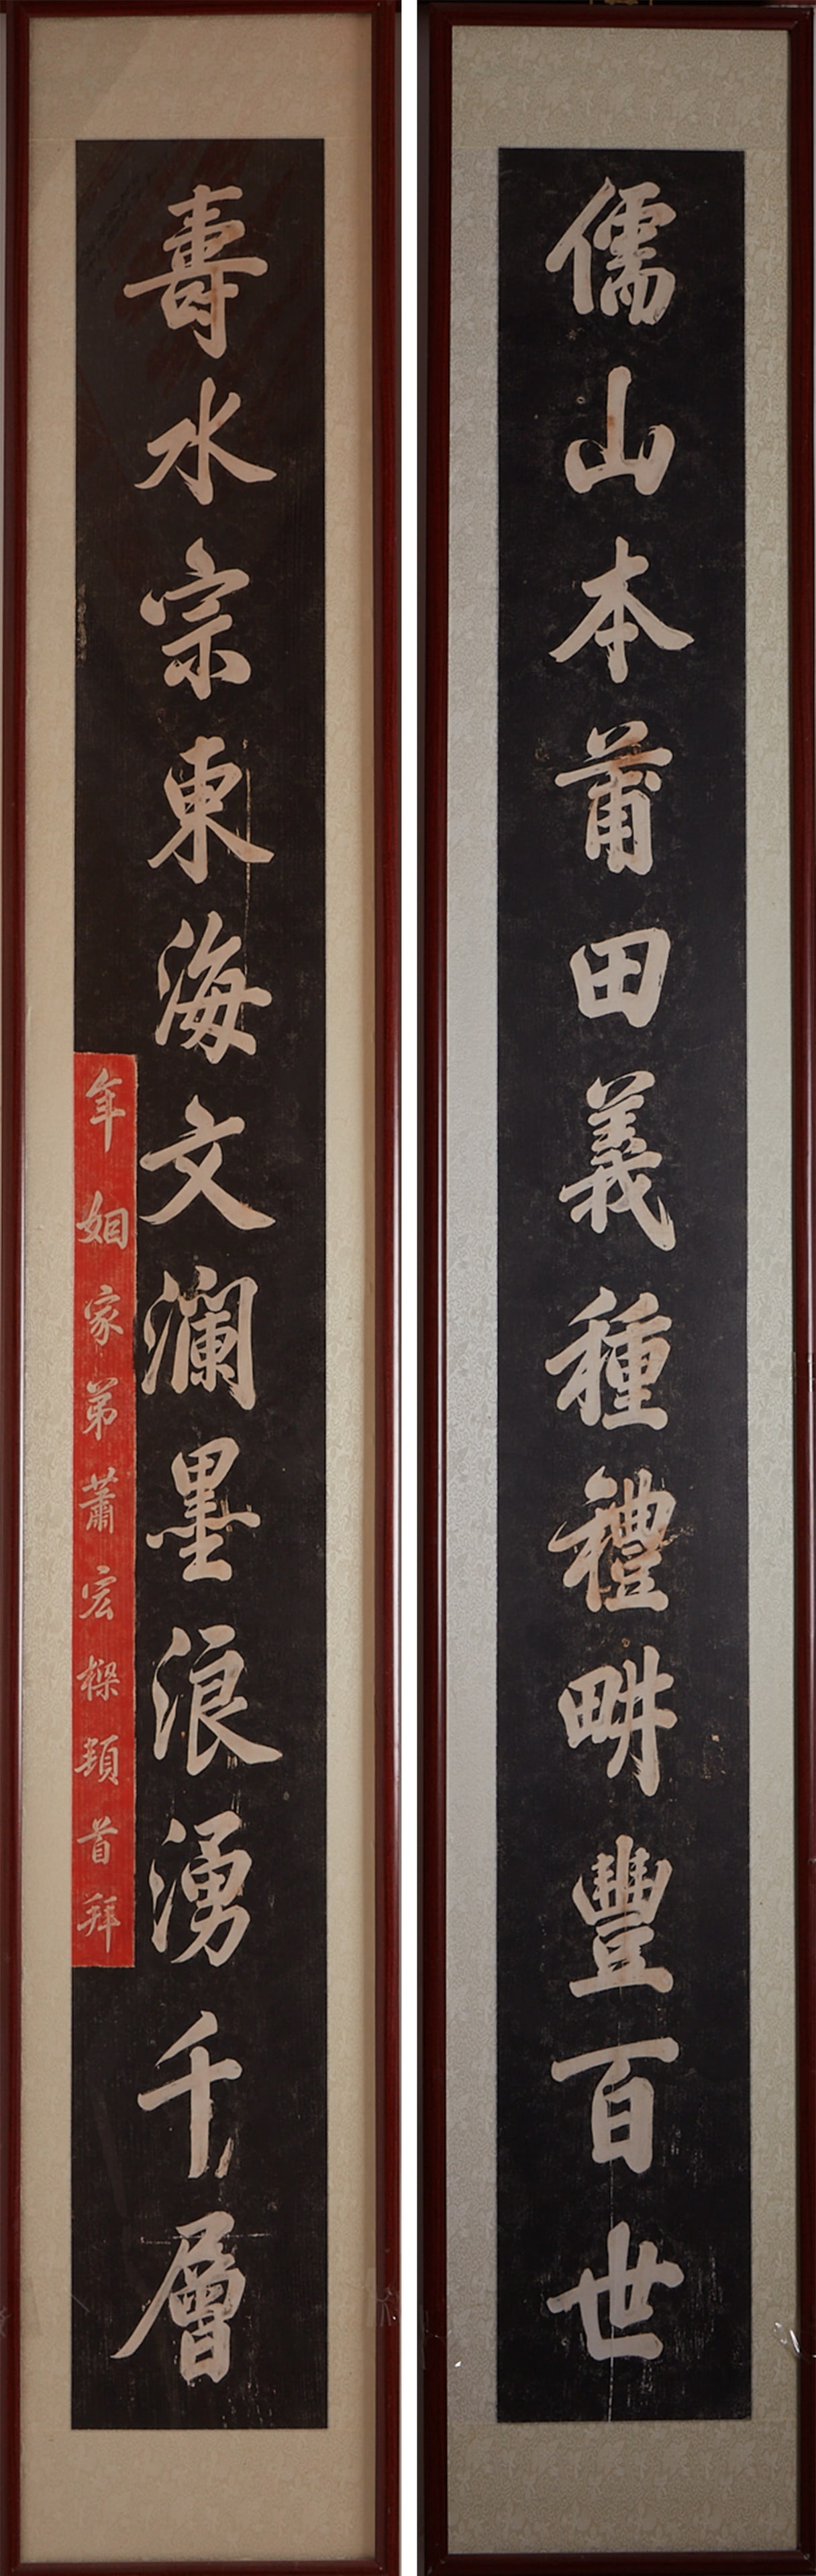 儒山本莆田義種禮畊豐百世
壽水宗東海文瀾墨浪湧千層
年姻家弟蕭宏樑頓首拜